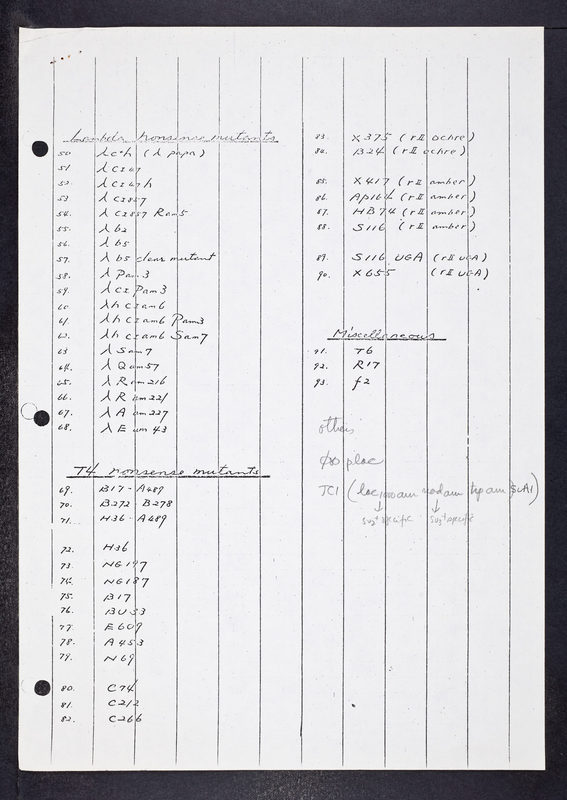 Lambda nonsense mutants
50 λc+h (λ papa)
51 λcI47
52. λcI47h
53 λcI857
54. λcI857 Ram5
55. λb2
56. λb5
57. λb5 clear mutant
58. λPam3
59. λcI Pam3
60 λh cIam6
61. λh cIam6 Pam3
62. λh cIam6 Sam7
63 λSam7
64. λQam57
65. λRam216
66. λRam221
67. λAam227
68. λEam43
T4 nonsense mutants
69. B17-A489
70. B272-B278
71. H36-A489
72. H36
73. NG197
74. NG187
75. B17
76. BU33
77. E609
78. A453
79. N69
80. C74
81. C212
82. C266
83. X375 (rII ochre)
84. B24 (rII ochre)
85. X417 (rII amber)
86. AP164 (rII amber)
87. HB74 (rII amber)
88. S116 (rII amber)
89. S116 UGA (rII UGA)
90. X655 (rII UGA)
Miscellaneous
91. T6
92. R17
93. f2
others
φ80 plac
TC1 (lac1000am rodam trp am SuA1)
↓ ↓
su3+ specific su3+ specific